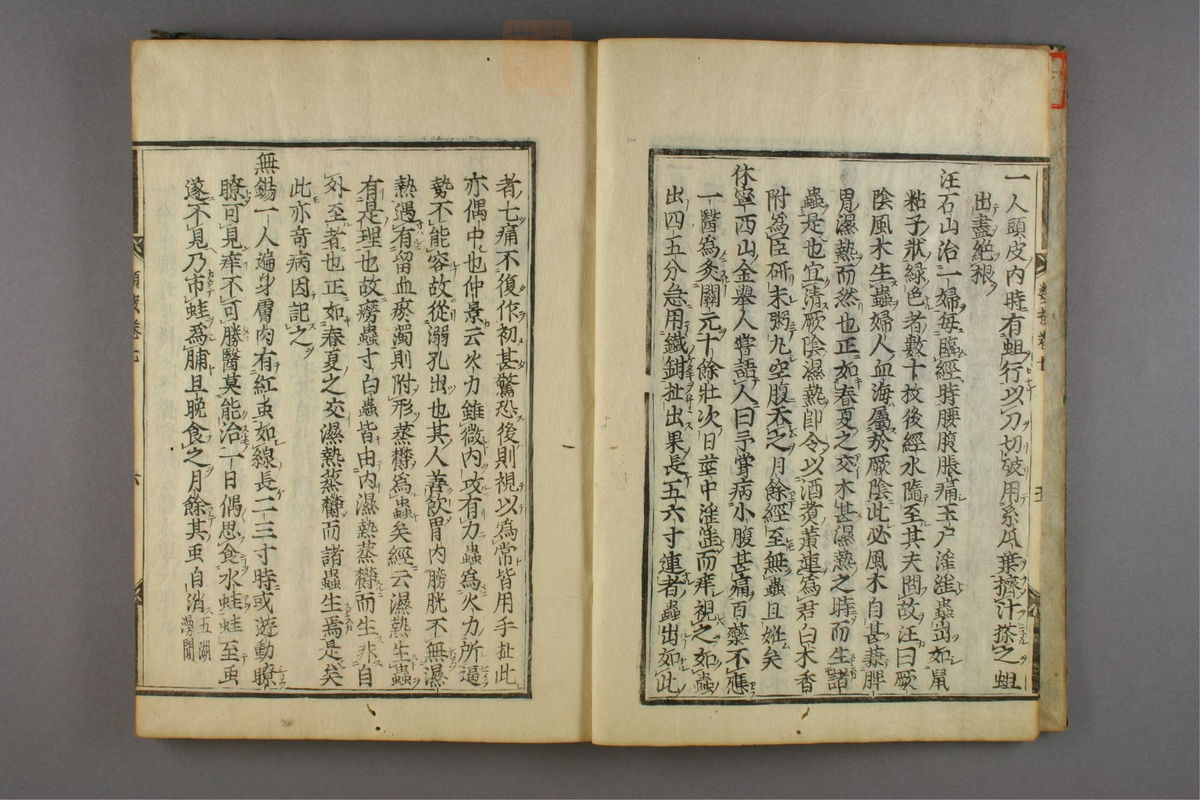 一人頭皮内時有蛆行以刀切破用糸瓜葉擠汁搽之蛆
出盡絶根
汪石山治一婦毎臨經時腰腹脹痛玉戸淫淫蟲出如鼠
粘子狀緑色者數十枚後經水隨至其夫問故汪曰厥
陰風木生蟲婦人血海屬於厥陰此必風木自甚兼脾
胃濕熱而然也正如春夏之交木甚濕熱之時而生諸
蟲是也宜清厥陰濕熱即令以酒煑黃連爲君白木香
附爲臣研末粥丸空腹吞之月餘經至無蟲且姙矣
休寧西山金舉人嘗語人曰予嘗病小腹甚痛百藥不應
一醫爲灸關元十餘壯次日莖中淫淫而痒視之如蟲
出四五分急用鐵鉗扯出果長五六寸連者蟲出如此
者七痛不復作初甚驚恐後則視以爲常皆用手扯此
亦偶中也仲景云火力雖微内攻有力蟲爲火力所逼
勢不能容故從溺孔出也其人善飲胃内膀胱不無濕
熱遇有留血瘀濁則附形蒸欝為蟲矣經云濕熱生蟲
有是理也故癆蟲寸白蟲皆由内濕熱蒸欝而生非自
外至者也正如春夏之交濕熱蒸欝而諸蟲生焉是矣
此亦竒病因記之
無錫一人遍身膚肉有紅䖝如線長二三寸時或遊動瞭
瞭可見痒不可勝醫莫能治一日偶思食水蛙蛙至䖝
遂不見乃市蛙爲脯且晩食之月餘其䖝自消五湖
漫聞